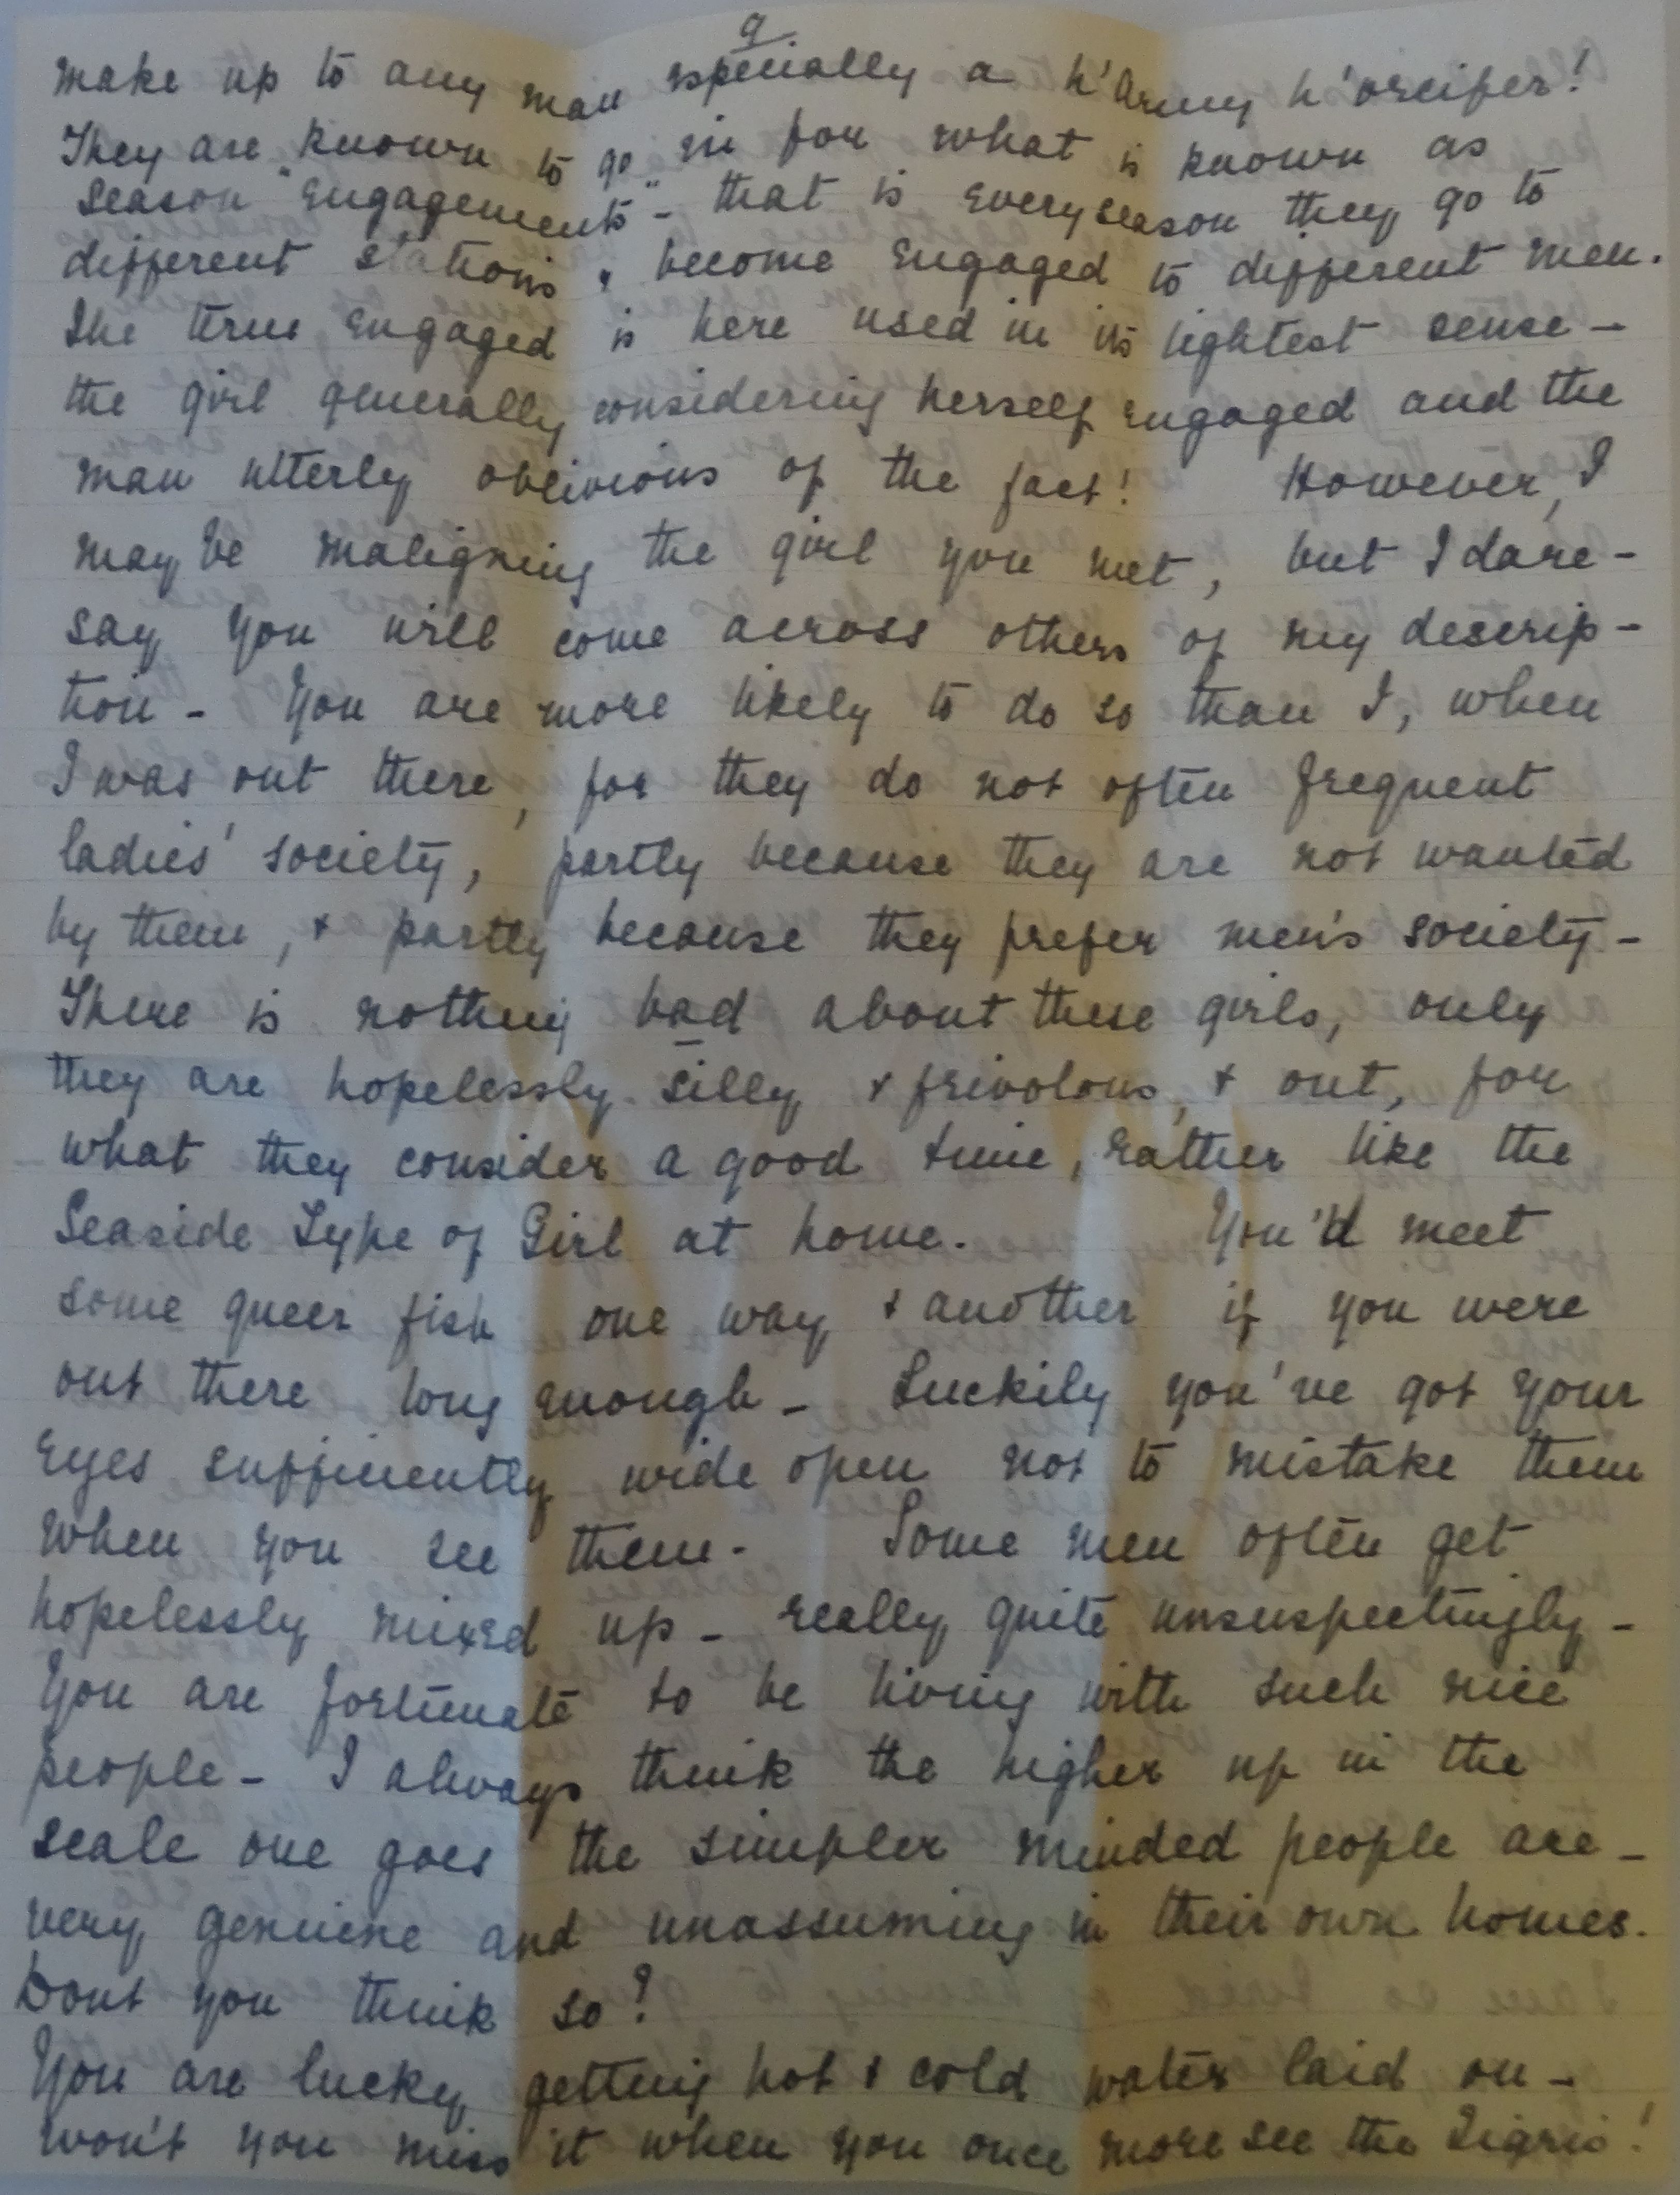 9.
make up to any man especially a h'Army h'orcifer!
They are known to go in for what is known as
season "engagements" - that is every season they go to
different stations & become engaged to different men.
The term engaged is here used in its lightest sense -
the girl generally considering herself engaged and the
man utterly oblivious of the fact! However, I
may be maligning the girl you met, but I dare-
say you will come across others of my descrip-
tion - You are more likely to do so than I, when
I was out there, for they do not often frequent
ladies' society, partly because they are not wanted
by them, & partly because they prefer men's society -
There is nothing bad about these girls, only
they are hopelessly silly & frivolous, & out, for
what they consider a good time, rather like the
Seaside Type of Girl at home. You'd meet
some queer fish one way & another if you were
out there long enough - Luckily you've got your
eyes sufficiently wide open not to mistake them
when you see them - Some men often get
hopelessly mixed up - really quite unsuspectingly -
You are fortunate to be living with such nice
people - I always think the higher up in the
scale one goes the simpler minded people are -
very genuine and unassuming in their own homes.
Dont you think so?
You are lucky getting hot & cold water laid on -
won't you miss it when you once more see the Tigris!